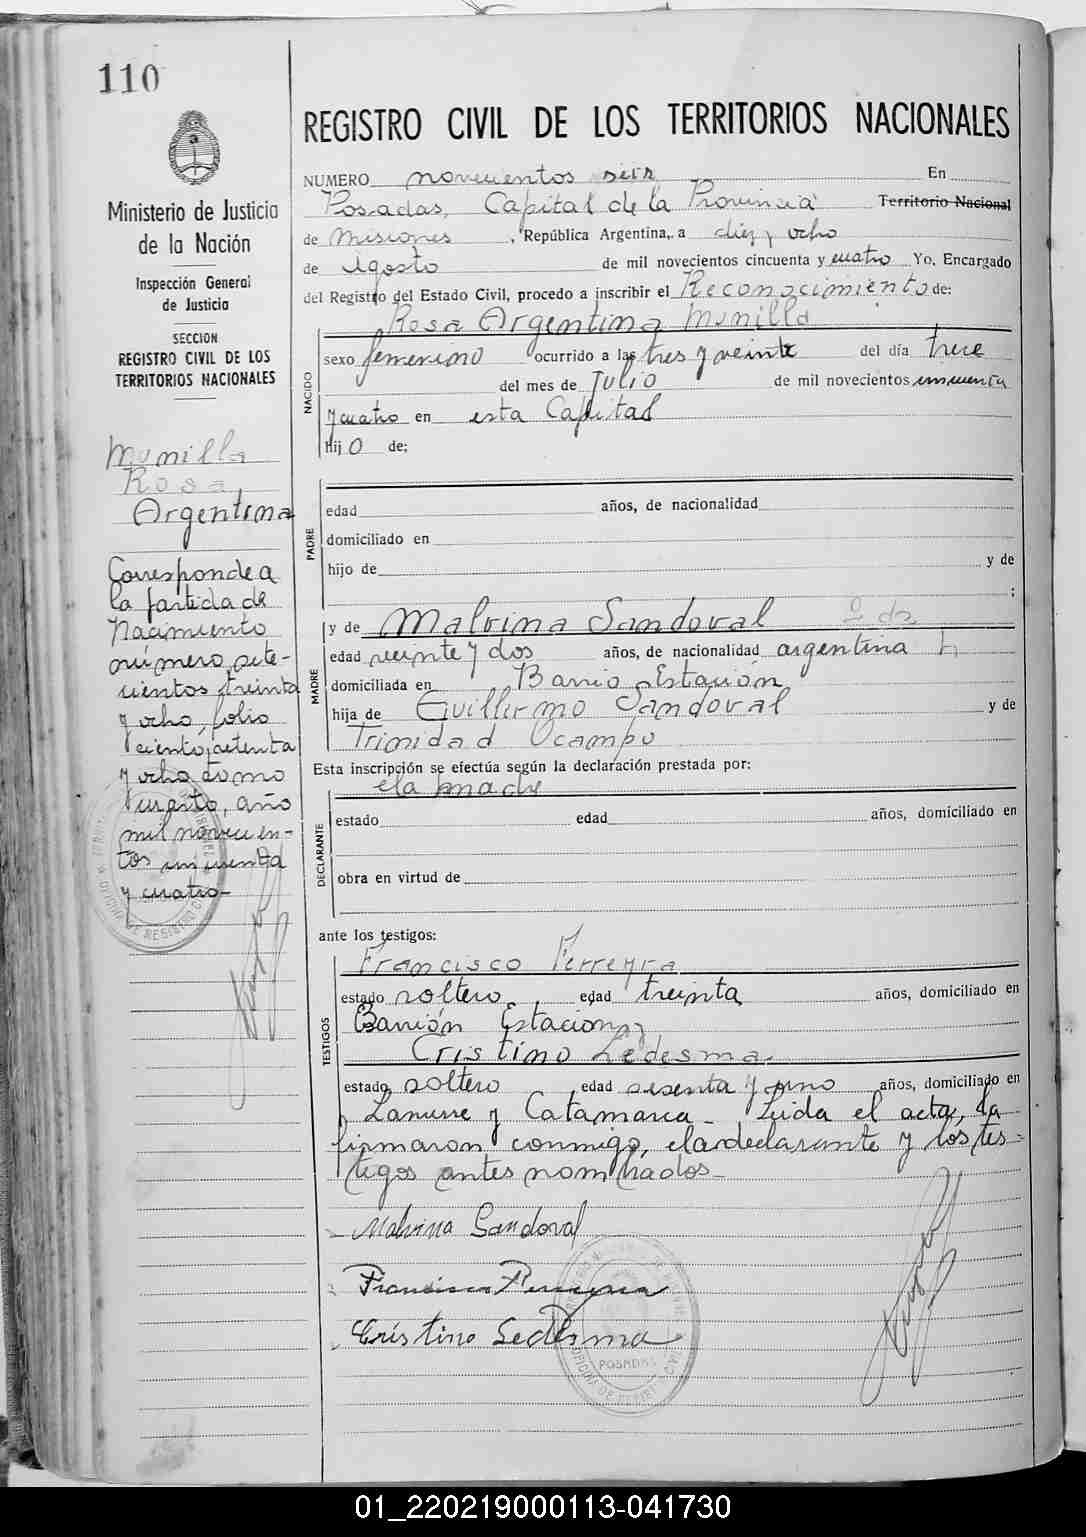 110
REGISTRO CIVIL DE LOS TERRITORIOS NACIONALES
Ministerio de Justicia
de la Nación
Inspección General
de Justicia
SECCION
REGISTRO CIVIL DE LOS
TERRITORIOS NACIONALES
Munilla
Rosa
Argentina
Corresponde a
la partida de
Nacimiento
número sete-
cientos treinta
y ocho, folio
ciento setenta
y ocho tomo
cuarto, año
mil novecien-
tos cincuenta
y cuatro-
NUMERO novecientos seis En
Posadas, Capital de la Provincia Territorio Nacional
de Misiones, República Argentina, a diez y ocho
de Agosto de mil novecientos cincuenta y cuatro Yo, Encargado
del Registro del Estado Civil, procedo a inscribir el Reconocimiento de:
Rosa Argentina Munilla
NACIDO
sexo femenino ocurrido a las tres y veinte del día trece
del mes de Julio de mil novecientos cincuenta
y cuatro en esta Capital
hijo de;
PADRE
edad años, de nacionalidad
domiciliado en
hijo de y de
;
y de Malvina Sandoval
MADRE
edad veinte y dos años, de nacionalidad argentina
domiciliada en Barrio Estación
hija de Guillermo Sandoval y de
Trinidad Ocampo
Esta inscripción se efectúa según la declaración prestada por:
ela madre
DECLARANTE
estado edad años, domiciliado en
obra en virtud de
ante los testigos:
Francisco Ferreyra
TESTIGOS
estado soltero, edad treinta años, domiciliado en
Barrión Estación y
Cristino Ledesma,
estado soltero edad sesenta y uno años, domiciliado en
Lanusse y Catamarca- Leida el acta, la
firmaron conmigo, eladeclarante y los tes-
tigos antes nombrados-
Malvina Sandoval
Francisco Ferreyra
Cristino Ledesma
POSADAS
01_220219000113-041730